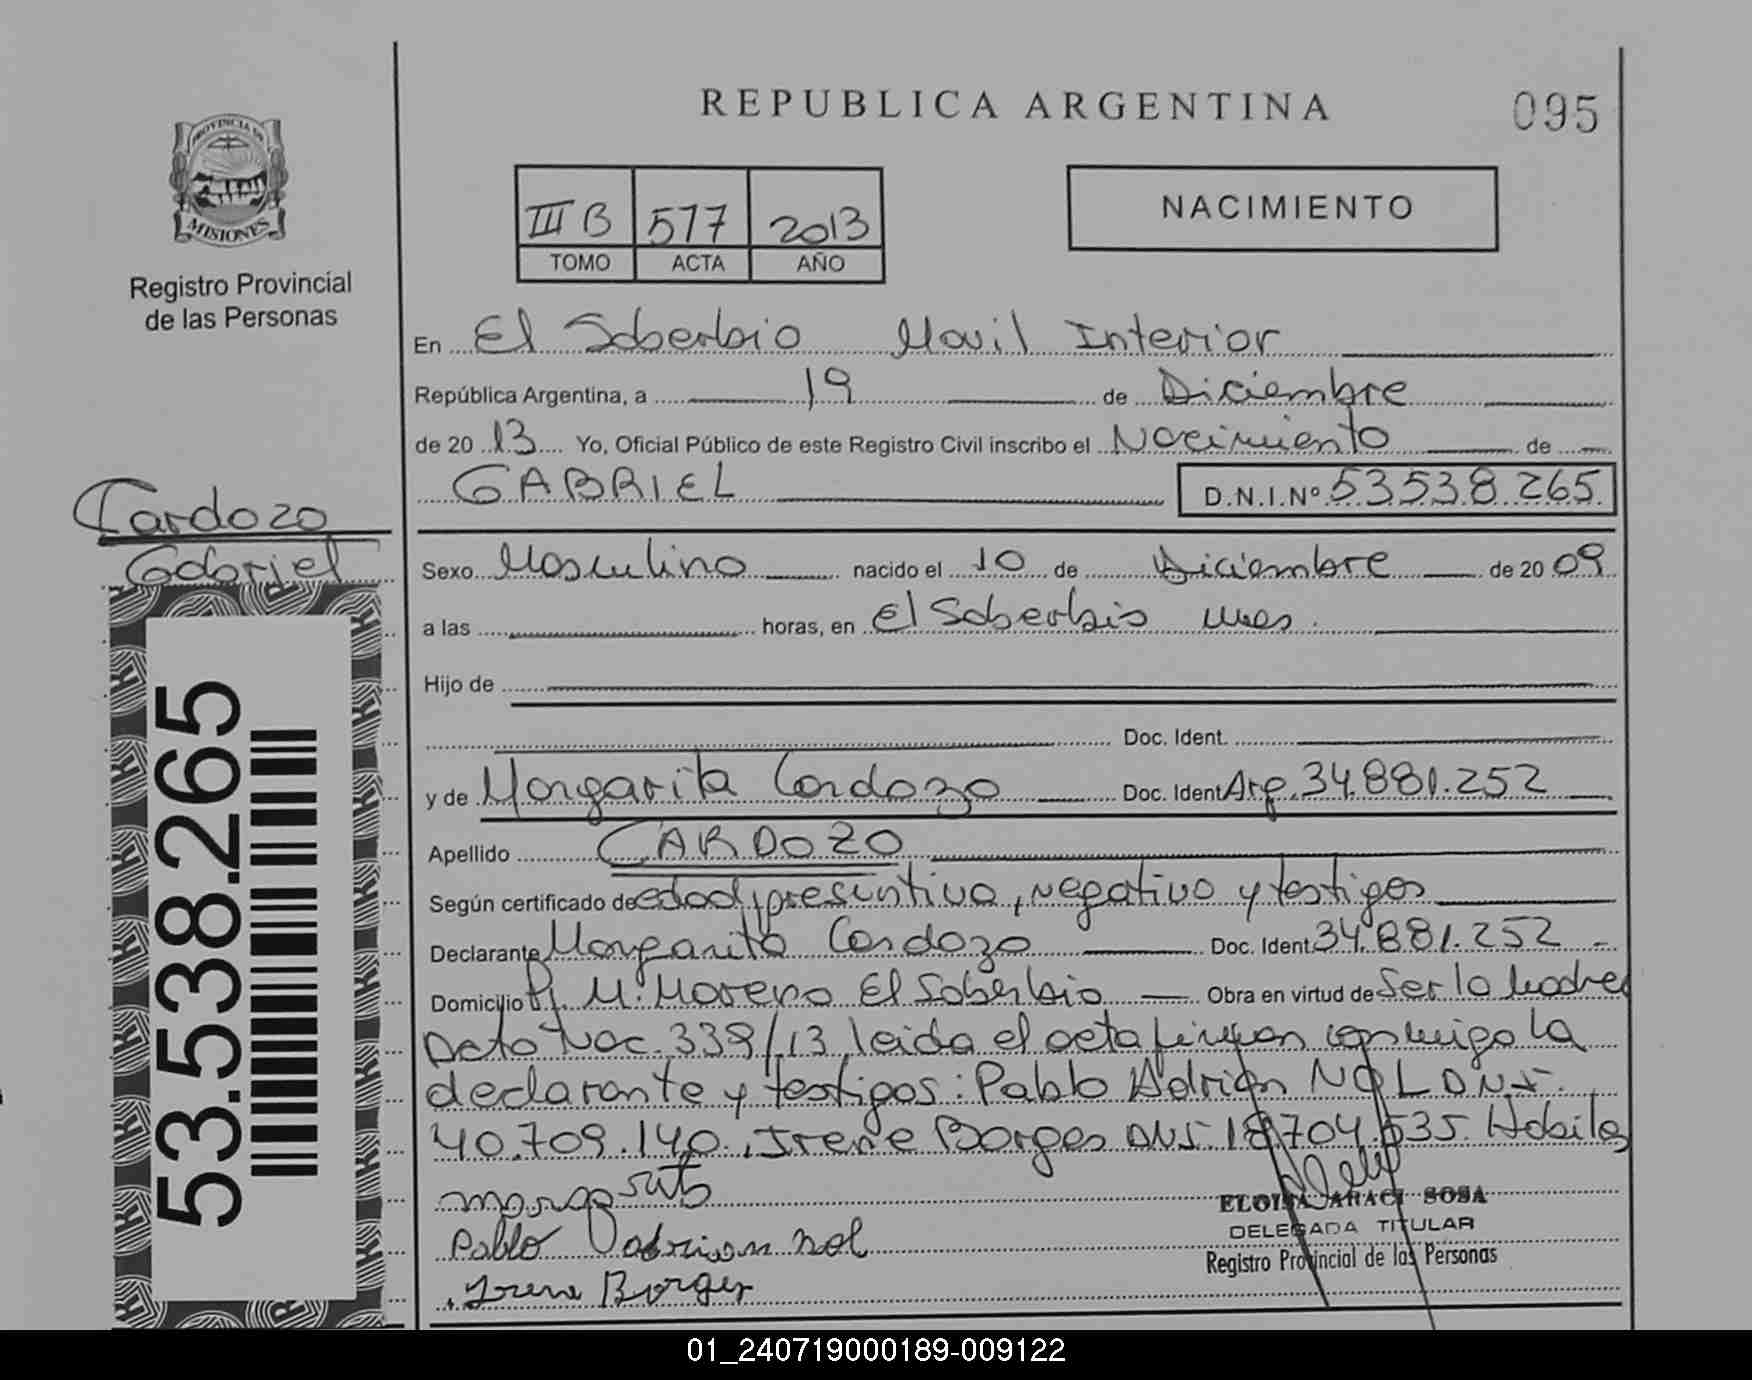 REPUBLICA ARGENTINA
095
PROVINCIA DE
MISIONES
Registro Provincial
de las Personas
III B 577 2013
TOMO ACTA AÑO
NACIMIENTO
En El Soberbio Movil Interior
República Argentina, a 19 de Diciembre
de 2013 Yo, Oficial Público de este Registro Civil inscribo el Nacimiento de
GABRIEL D.N.I.Nº 53538.265
Cardozo
Gabriel
Sexo Masculino nacido el 10 de Diciembre de 2009
a las horas, en El Soberbio Mnes.
Hijo de
Doc. Ident.
y de Margarita Cardozo Doc. Ident. Arg. 34.881.252
Apellido CARDOZO
Según certificado de edad presuntiva, negativo y testigos
Declarante Margarita Cardozo Doc. Ident. 34.881.252
Domicilio Pj. M. Moreno El Soberbio Obra en virtud de Ser la Madre
Dcto Nac. 339/13 leida el acta firman conmigo la
declarante y testigos: Pablo Adrian NOL DNI.
40.709.140, Irene Borges DNI 18704535. Habiles
margarita
Pablo adrian nol
Irene Borges
ELOISA ARACI SOSA
DELEGADA TITULAR
Registro Provincial de las Personas
53.538.265
01_240719000189-009122